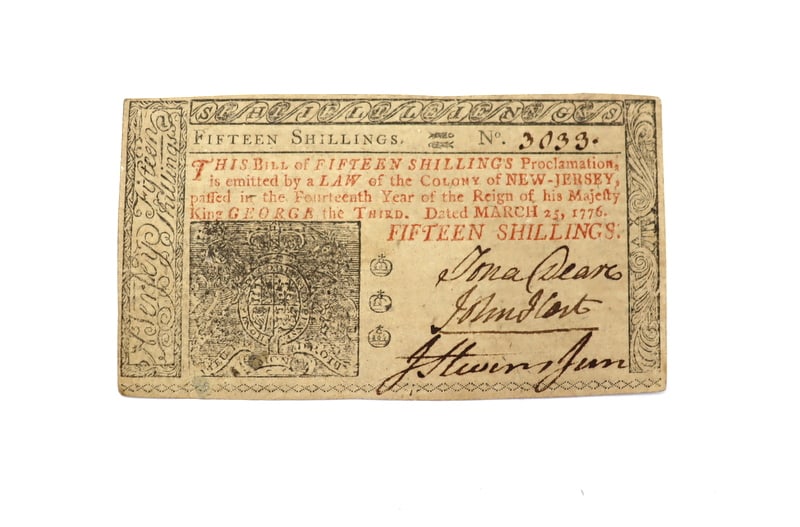 SHILLINGS
FIFTEEN SHILLINGS. No. 3033.
THIS BILL of FIFTEEN SHILLINGS Proclamation,
is emitted by a LAW of the COLONY of NEW-JERSEY,
paſſed in the Fourteenth Year of the Reign of his Majeſty
King GEORGE the THIRD. Dated MARCH 25, 1776.
FIFTEEN SHILLINGS.
Jona Deare
John Hart
J Stevens Jun
Jerſey Fifteen
Shillings